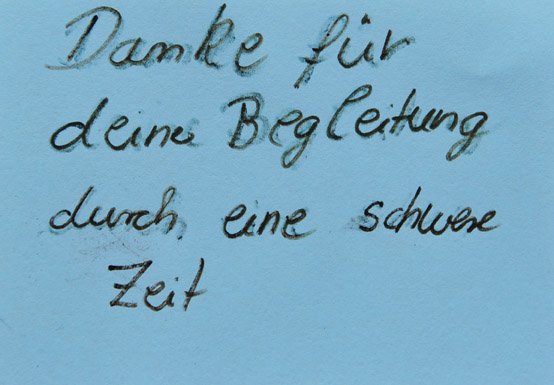 Danke für
deine Begleitung
durch eine schwere
Zeit